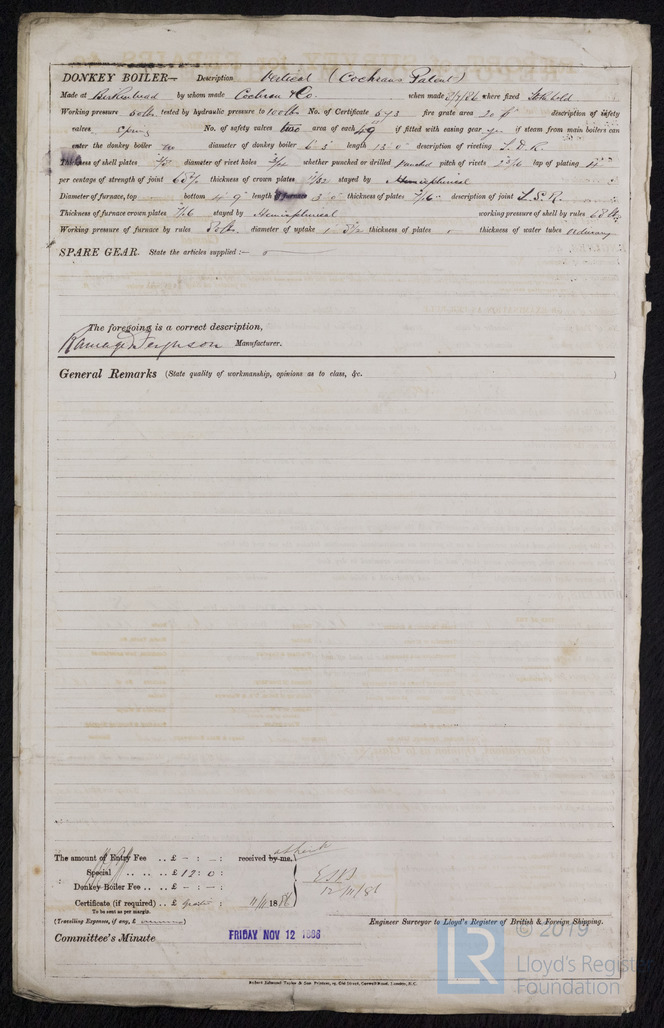 DONKEY BOILER— Description Vertical (Cochrans Patent)
Made at Birkenhead by whom made Cochran & Co. when made 8/9/86 where fixed Stokehold
Working pressure 50 lbs tested by hydraulic pressure to 100 lbs No. of Certificate 543 fire grate area description of safety
valves Spring No. of safety valves two area of each if fitted with easing gear yes if steam from main boilers can
enter the donkey boiler no diameter of donkey boiler length 13' 0" description of riveting L. D. R.
Thickness of shell plates diameter of rivet holes whether punched or drilled punched pitch of rivets lap of plating
per centage of strength of joint thickness of crown plates stayed by Hemispherical
Diameter of furnace, top bottom 4' 9" length of furnace 3' 0" thickness of plates 7/16 description of joint L. S. R.
Thickness of furnace crown plates 7/16 stayed by Hemispherical working pressure of shell by rules
Working pressure of furnace by rules diameter of uptake thickness of plates thickness of water tubes ordinary
SPARE GEAR. State the articles supplied:—
The foregoing is a correct description,
Ramage & Ferguson Manufacturer.
General Remarks (State quality of workmanship, opinions as to class, &c.
The amount of Entry Fee .. £ - : - : received by me,
Special .. .. £ 12 : 0 :
Donkey Boiler Fee .. .. £ - : - :
Certificate (if required) .. £ gratis : 11/11 1886
12/11/86
To be sent as per margin.
(Travelling Expenses, if any, £ )
Engineer Surveyor to Lloyd's Register of British & Foreign Shipping.
Committee's Minute FRIDAY NOV 12 1886
Robert Edmund Taylor & Son Printers, 19, Old Street, Goswell Road, London, E.C.
LR © 2019
Lloyd's Register
Foundation